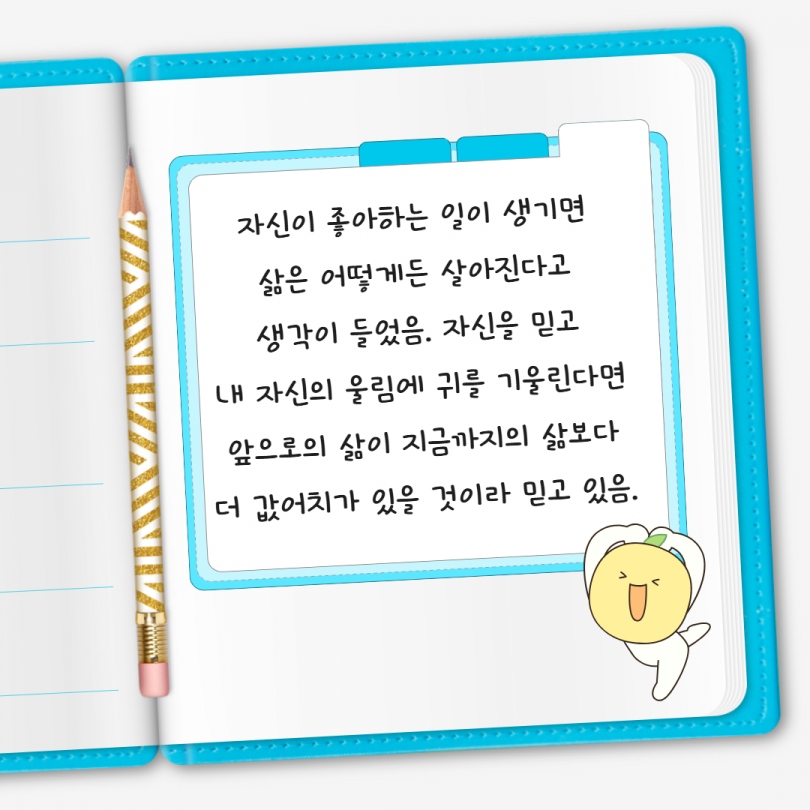 자신이 좋아하는 일이 생기면
삶은 어떻게든 살아진다고
생각이 들었음. 자신을 믿고
내 자신의 울림에 귀를 기울린다면
앞으로의 삶이 지금까지의 삶보다
더 값어치가 있을 것이라 믿고 있음.